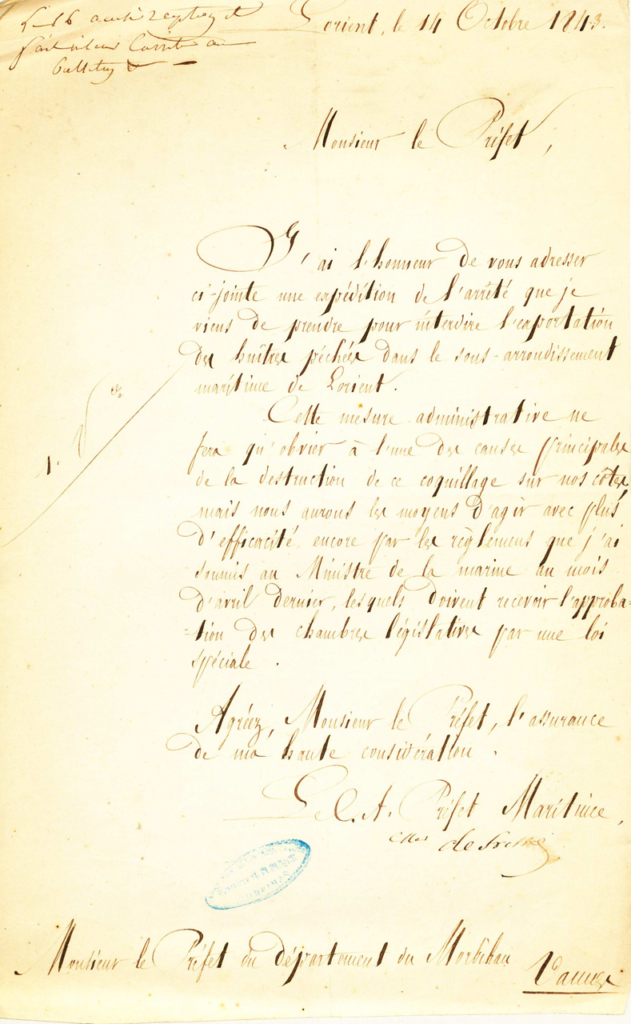 Lorient, le 14 Octobre 1843.
Monsieur le Préfet,
J'ai l'honneur de vous adresser
ci-jointe une expédition de l'arrêté que je
viens de prendre pour interdire l'exportation
des huîtres pêchées dans le sous-arrondissement
maritime de Lorient.
Cette mesure administrative ne
fera qu'obvier à l'une des causes principales
de la destruction de ce coquillage sur nos côtes,
mais nous aurons les moyens d'agir avec plus
d'efficacité encore par les règlemens que j'ai
soumis au Ministre de la marine au mois
d'avril dernier, lesquels doivent recevoir l'approba-
-tion des chambres législatives par une loi
spéciale.
1.
Agréez, Monsieur le Préfet, l'assurance
de ma haute considération.
Le C. A. Préfet Maritime,
Monsieur le Préfet du département du Morbihan
Vannes